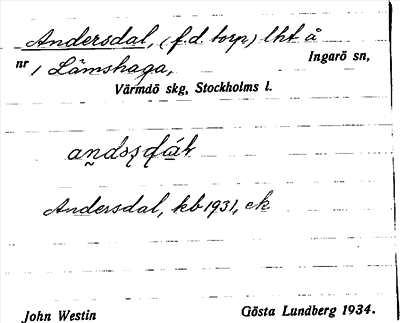 Andersdal, (f.d. torp) lht å
nr 1 Lämshaga, Ingarö sn,
Värmdö skg, Stockholms l.
Andersdal, kb 1931, ek
John Westin Gösta Lundberg 1934.